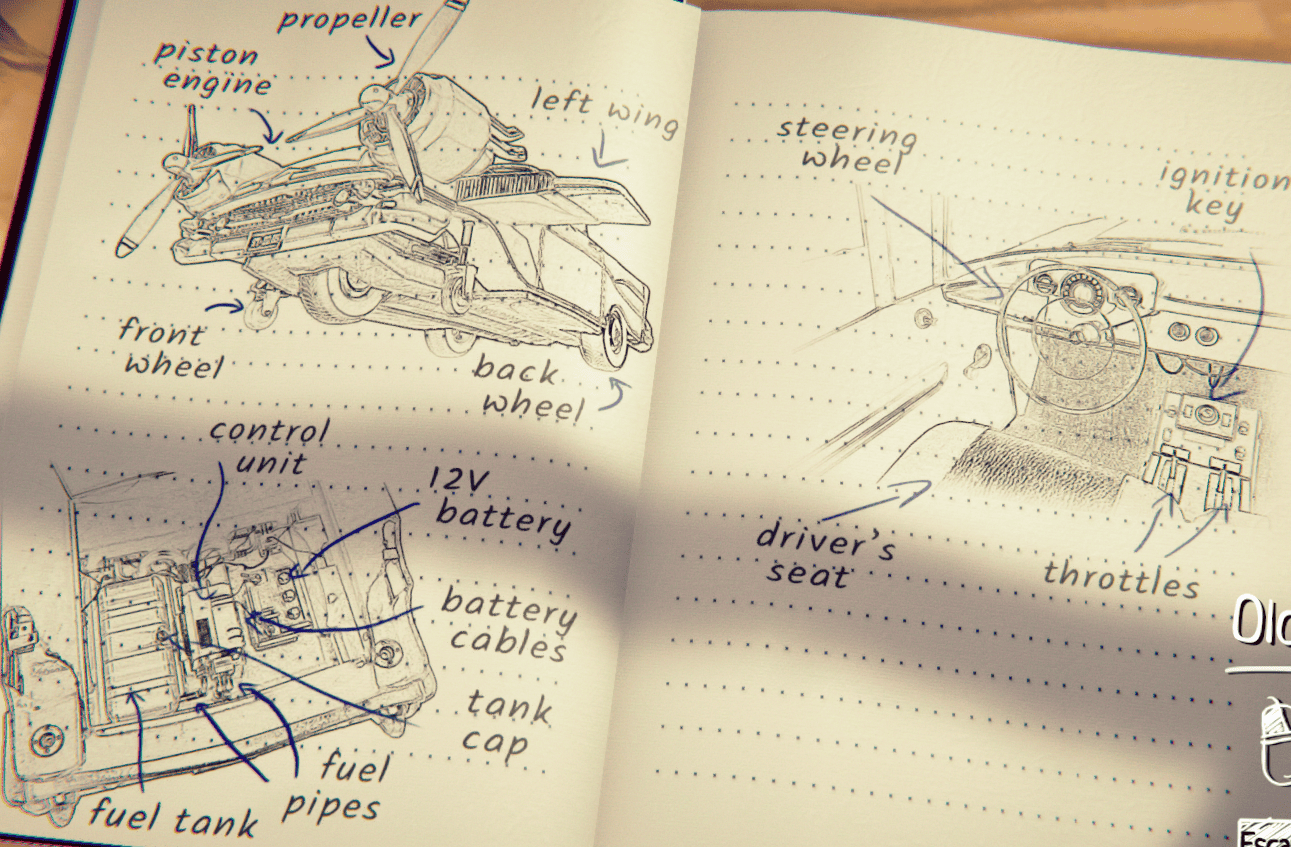 propeller
piston
engine
left wing
front
wheel
back
wheel
control
unit
12V
battery
battery
cables
tank
cap
fuel
pipes
fuel tank
steering
wheel
ignition
key
driver's
seat
throttles